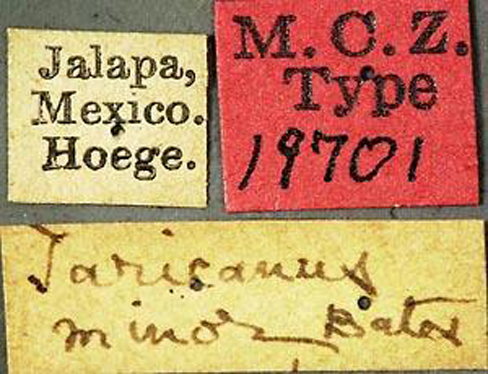 Jalapa,
Mexico.
Hoege.
M.C.Z.
Type
19701
Taricanus
minor Bates